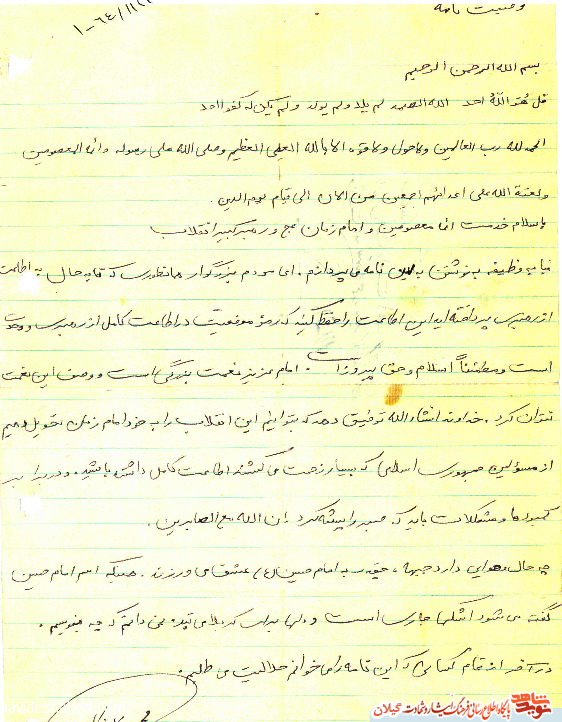 وصیت نامه
بسم الله الرحمن الرحیم
قل هو اللهُ احد الله الصمد لم یلد ولم یولد ولم یکن له کفوا احد
الحمد لله رب العالمین ولاحول ولاقوه الا بالله العلی العظیم وصلی الله علی رسوله وائمه المعصومین
ولعنة الله علی اعدائهم اجمعین من الان الی قیام یوم الدین.
باسلام خدمت ائمه معصومین و امام زمان عج و رهبر کبیر انقلاب
بنا به وظیفه به نوشتن نامه می پردازم. ای مردم بزرگوار همانطوری که تا به حال به اطاعت
از رهبری پرداخته اید این اطاعت را حفظ کنید که رمز موفقیت در اطاعت کامل از رهبری و وحدت
است و مطمئناً اسلام و حق پیروز است. امام عزیز نعمت بزرگی است و وصف این نعمت
نتوان کرد. خداوند انشاءالله توفیق دهد که بتوانیم این انقلاب را به خود امام زمان تحویل دهیم
از مسؤلین جمهوری اسلامی که بسیار زحمت می کشند اطاعت کامل داشته باشید، و در برابر
کمبودها و مشکلات باید که صبر را پیشه کرد ان الله مع الصابرین.
چه حال و هوایی دارد جبهه، چقدر به امام حسین (ع) عشق می ورزند. همینکه اسم امام حسین
گفته می شود اشکها جاری است و دلها برای کربلا می تپد، نمی دانم که چه بنویسم.
در آخر از تمام کسانی که این نامه را می خوانند حلالیت می طلبم.
نوید شاهد
پایگاه اطلاع رسانی فرهنگ ایثار و شهادت گیلان